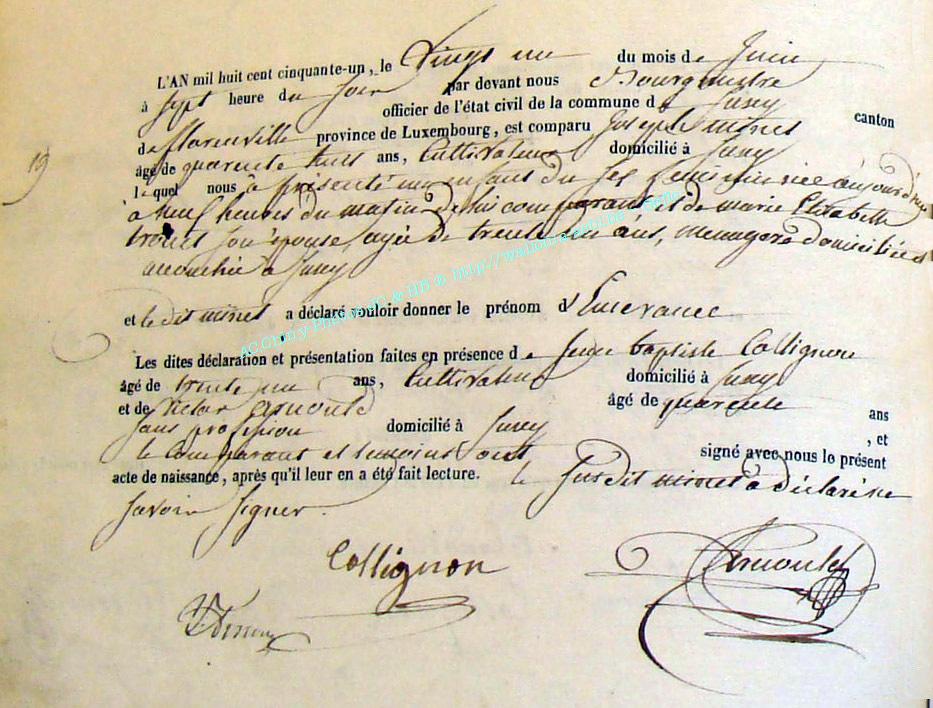 19
L'AN mil huit cent cinquante-un, le Vingt un du mois de Juin
à sept heure du soir par devant nous Bourgmestre
officier de l'état civil de la commune de Jusey canton
de Florenville province de Luxembourg, est comparu Joseph minet
âgé de quarente huit ans, Cultivateur domicilié à Jusey
lequel nous a présenté un enfant du sex feminin née aujourd'hui
à huit heures du matin de lui comparant et de marie Elisabette
son épouse, agée de trente six ans, menagere domiciliées
accouchée a Jusey
et le dit minet a déclaré vouloir donner le prénom d'Emerance
Les dites déclaration et présentation faites en présence de Jean baptiste Collignon
âgé de trente un ans, Cultivateur domicilié à Jusey
et de victor arnould âgé de quarente ans
sans profession domicilié à Jusey , et
le comparant et temoins ont signé avec nous le présent
acte de naissance, après qu'il leur en a été fait lecture. le susdit minet a déclaré ne
savoir signer.
Collignon Arnould
AC Chiny Photos JC & HB © http://